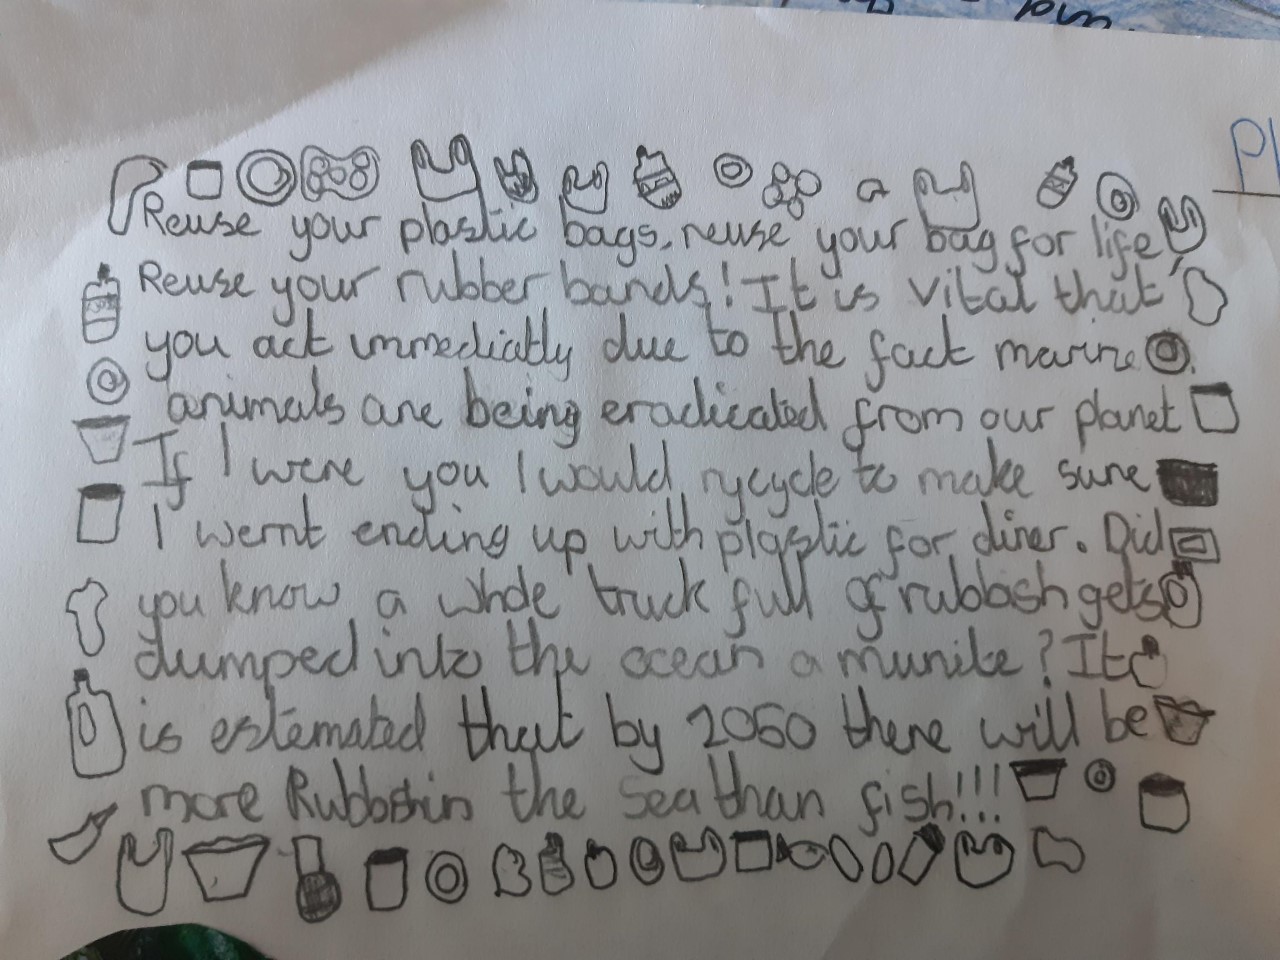 Pl
Reuse your plastic bags, reuse your bag for life
Reuse your rubber bands! It is vital that
you act immediatly due to the fact marine
animals are being eradicated from our planet
If I were you I would rycycle to make sure
I wernt ending up with plastic for diner. Did
you know a whole truck full of rubbish gets
dumped into the ocean a munite? It
is estemated that by 2050 there will be
more Rubbish in the sea than fish!!!